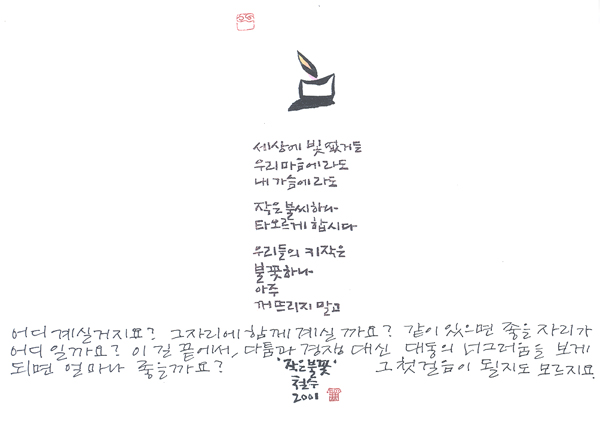 세상에 빛 없거든
우리 마음에라도
내 가슴에라도
작은 불씨하나
타오르게 합시다
우리들의 키작은
불꽃하나
아주
꺼뜨리지 말고
어디 계실거지요? 그자리에 함께 계실까요? 같이 있으면 좋을 자리가
어디 일까요? 이 길 끝에서, 다툼과 경쟁 대신 대동의 너그러움을 보게
되면 얼마나 좋을까요? 그 첫걸음이 될지도 모르지요.
'작은불꽃'
철수
2001